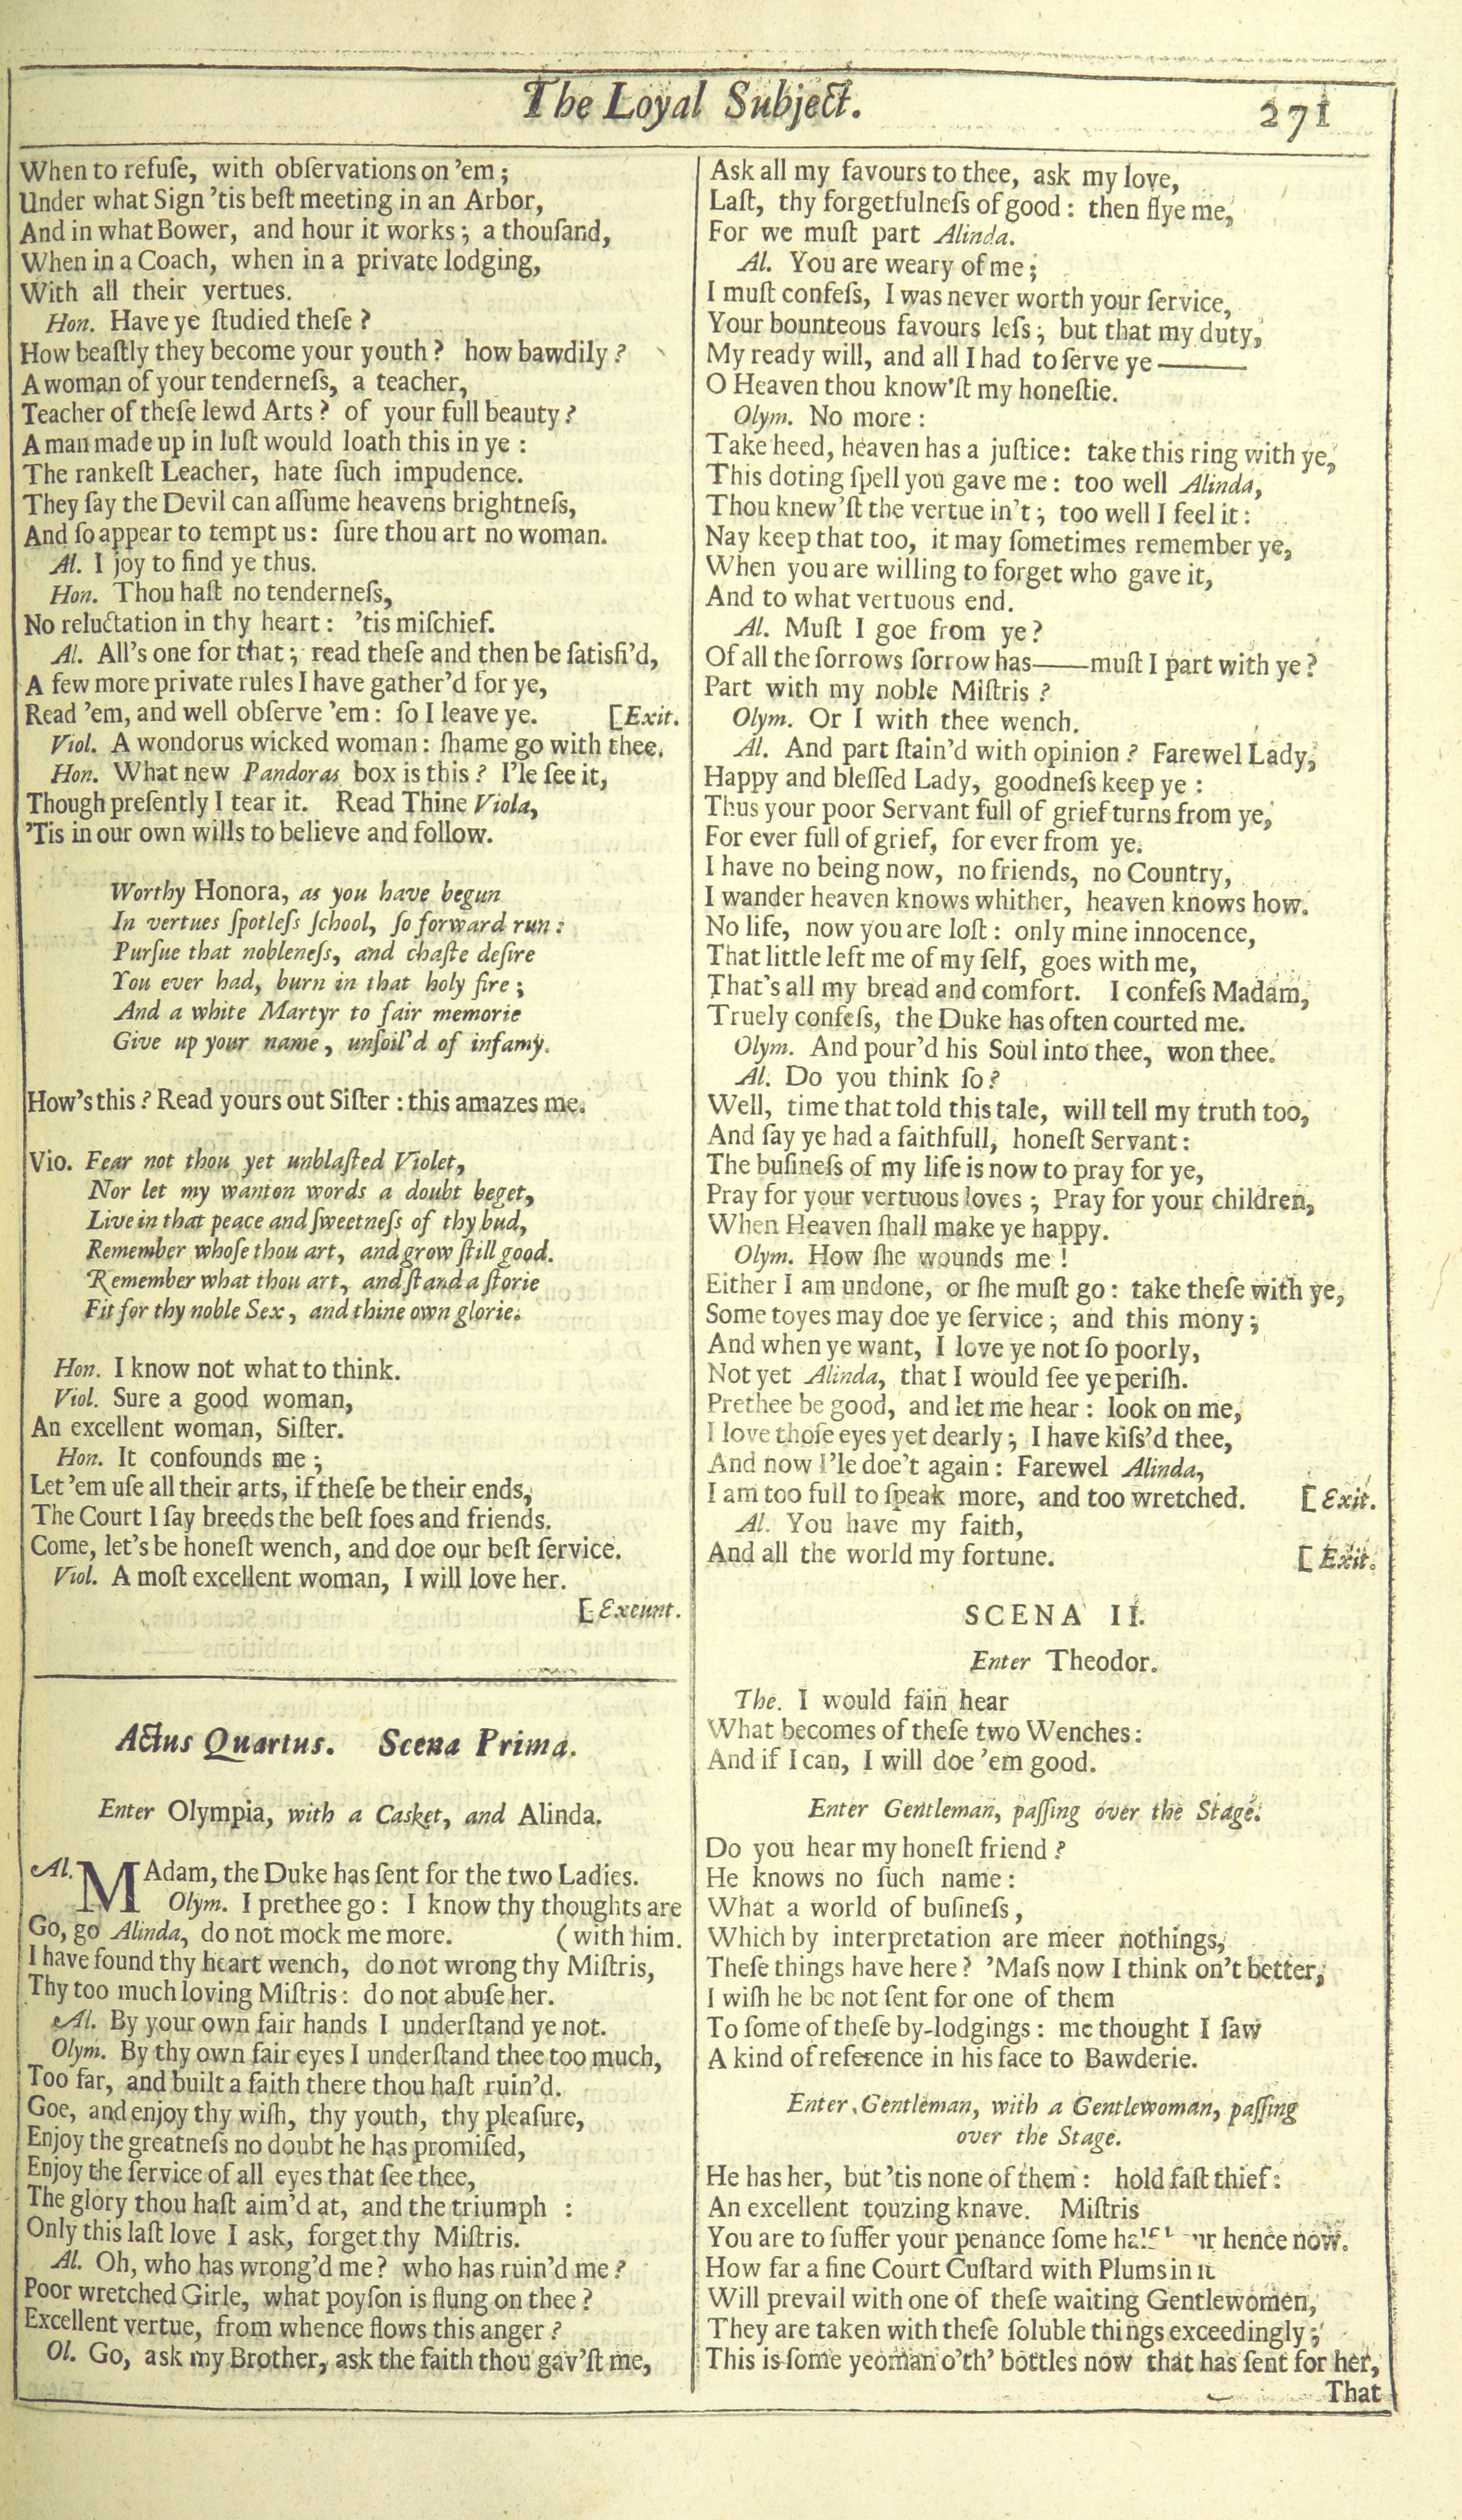 The Loyal Subject.
271
When to refuſe, with obſervations on 'em;
Under what Sign 'tis beſt meeting in an Arbor,
And in what Bower, and hour it works; a thouſand,
When in a Coach, when in a private lodging,
With all their vertues.
Hon. Have ye ſtudied theſe?
How beaſtly they become your youth? how bawdily?
A woman of your tenderneſs, a teacher,
Teacher of theſe lewd Arts? of your full beauty?
A man made up in luſt would loath this in ye:
The rankeſt Leacher, hate ſuch impudence.
They ſay the Devil can aſſume heavens brightneſs,
And ſo appear to tempt us: ſure thou art no woman.
Al. I joy to find ye thus.
Hon. Thou haſt no tenderneſs,
No reluctation in thy heart: 'tis miſchief.
Al. All's one for that; read theſe and then be ſatisfi'd,
A few more private rules I have gather'd for ye,
Read 'em, and well obſerve 'em: ſo I leave ye. [Exit.
Viol. A wondorus wicked woman: ſhame go with thee.
Hon. What new Pandoras box is this? I'le ſee it,
Though preſently I tear it. Read Thine Viola,
'Tis in our own wills to believe and follow.
Worthy Honora, as you have begun
In vertues ſpotleſs ſchool, ſo forward run:
Purſue that nobleneſs, and chaſte deſire
You ever had, burn in that holy fire;
And a white Martyr to fair memorie
Give up your name, unſoil'd of infamy.
How's this? Read yours out Siſter: this amazes me.
Vio. Fear not thou yet unblaſted Violet,
Nor let my wanton words a doubt beget,
Live in that peace and ſweetneſs of thy bud,
Remember whoſe thou art, and grow ſtill good.
Remember what thou art, and ſtand a ſtorie
Fit for thy noble Sex, and thine own glorie.
Hon. I know not what to think.
Viol. Sure a good woman,
An excellent woman, Siſter.
Hon. It confounds me;
Let 'em uſe all their arts, if theſe be their ends,
The Court I ſay breeds the beſt foes and friends.
Come, let's be honeſt wench, and doe our beſt ſervice.
Viol. A moſt excellent woman, I will love her.
[Exeunt.
Actus Quartus. Scena Prima.
Enter Olympia, with a Casket, and Alinda.
Al. MAdam, the Duke has ſent for the two Ladies.
Olym. I prethee go: I know thy thoughts are
Go, go Alinda, do not mock me more. (with him.
I have found thy heart wench, do not wrong thy Miſtris,
Thy too much loving Miſtris: do not abuſe her.
Al. By your own fair hands I underſtand ye not.
Olym. By thy own fair eyes I underſtand thee too much,
Too far, and built a faith there thou haſt ruin'd.
Goe, and enjoy thy wiſh, thy youth, thy pleaſure,
Enjoy the greatneſs no doubt he has promiſed,
Enjoy the ſervice of all eyes that ſee thee,
The glory thou haſt aim'd at, and the triumph :
Only this laſt love I ask, forget thy Miſtris.
Al. Oh, who has wrong'd me? who has ruin'd me?
Poor wretched Girle, what poyſon is flung on thee?
Excellent vertue, from whence flows this anger?
Ol. Go, ask my Brother, ask the faith thou gav'ſt me,
Ask all my favours to thee, ask my love,
Laſt, thy forgetfulneſs of good: then flye me,
For we muſt part Alinda.
Al. You are weary of me;
I muſt confeſs, I was never worth your ſervice,
Your bounteous favours leſs; but that my duty,
My ready will, and all I had to ſerve ye——
O Heaven thou know'ſt my honeſtie.
Olym. No more:
Take heed, heaven has a juſtice: take this ring with ye,
This doting ſpell you gave me: too well Alinda,
Thou knew'ſt the vertue in't; too well I feel it:
Nay keep that too, it may ſometimes remember ye,
When you are willing to forget who gave it,
And to what vertuous end.
Al. Muſt I goe from ye?
Of all the ſorrows ſorrow has——muſt I part with ye?
Part with my noble Miſtris?
Olym. Or I with thee wench.
Al. And part ſtain'd with opinion? Farewel Lady,
Happy and bleſſed Lady, goodneſs keep ye:
Thus your poor Servant full of grief turns from ye,
For ever full of grief, for ever from ye.
I have no being now, no friends, no Country,
I wander heaven knows whither, heaven knows how.
No life, now you are loſt: only mine innocence,
That little left me of my ſelf, goes with me,
That's all my bread and comfort. I confeſs Madam,
Truely confeſs, the Duke has often courted me.
Olym. And pour'd his Soul into thee, won thee.
Al. Do you think ſo?
Well, time that told this tale, will tell my truth too,
And ſay ye had a faithfull, honeſt Servant:
The buſineſs of my life is now to pray for ye,
Pray for your vertuous loves; Pray for your children,
When Heaven ſhall make ye happy.
Olym. How ſhe wounds me!
Either I am undone, or ſhe muſt go: take theſe with ye,
Some toyes may doe ye ſervice; and this mony;
And when ye want, I love ye not ſo poorly,
Not yet Alinda, that I would ſee ye periſh.
Prethee be good, and let me hear: look on me,
I love thoſe eyes yet dearly; I have kiſs'd thee,
And now I'le doe't again: Farewel Alinda,
I am too full to ſpeak more, and too wretched. [Exit.
Al. You have my faith,
And all the world my fortune. [Exit.
SCENA II.
Enter Theodor.
The. I would fain hear
What becomes of theſe two Wenches:
And if I can, I will doe 'em good.
Enter Gentleman, paſſing over the Stage.
Do you hear my honeſt friend?
He knows no ſuch name:
What a world of buſineſs,
Which by interpretation are meer nothings,
Theſe things have here? 'Maſs now I think on't better,
I wiſh he be not ſent for one of them
To ſome of theſe by-lodgings: me thought I ſaw
A kind of reference in his face to Bawderie.
Enter Gentleman, with a Gentlewoman, paſſing
over the Stage.
He has her, but 'tis none of them: hold faſt thief:
An excellent touzing knave. Miſtris
You are to ſuffer your penance ſome hence now.
How far a fine Court Cuſtard with Plums in it
Will prevail with one of theſe waiting Gentlewomen,
They are taken with theſe ſoluble things exceedingly;
This is ſome yeoman o'th' bottles now that has ſent for her,
That